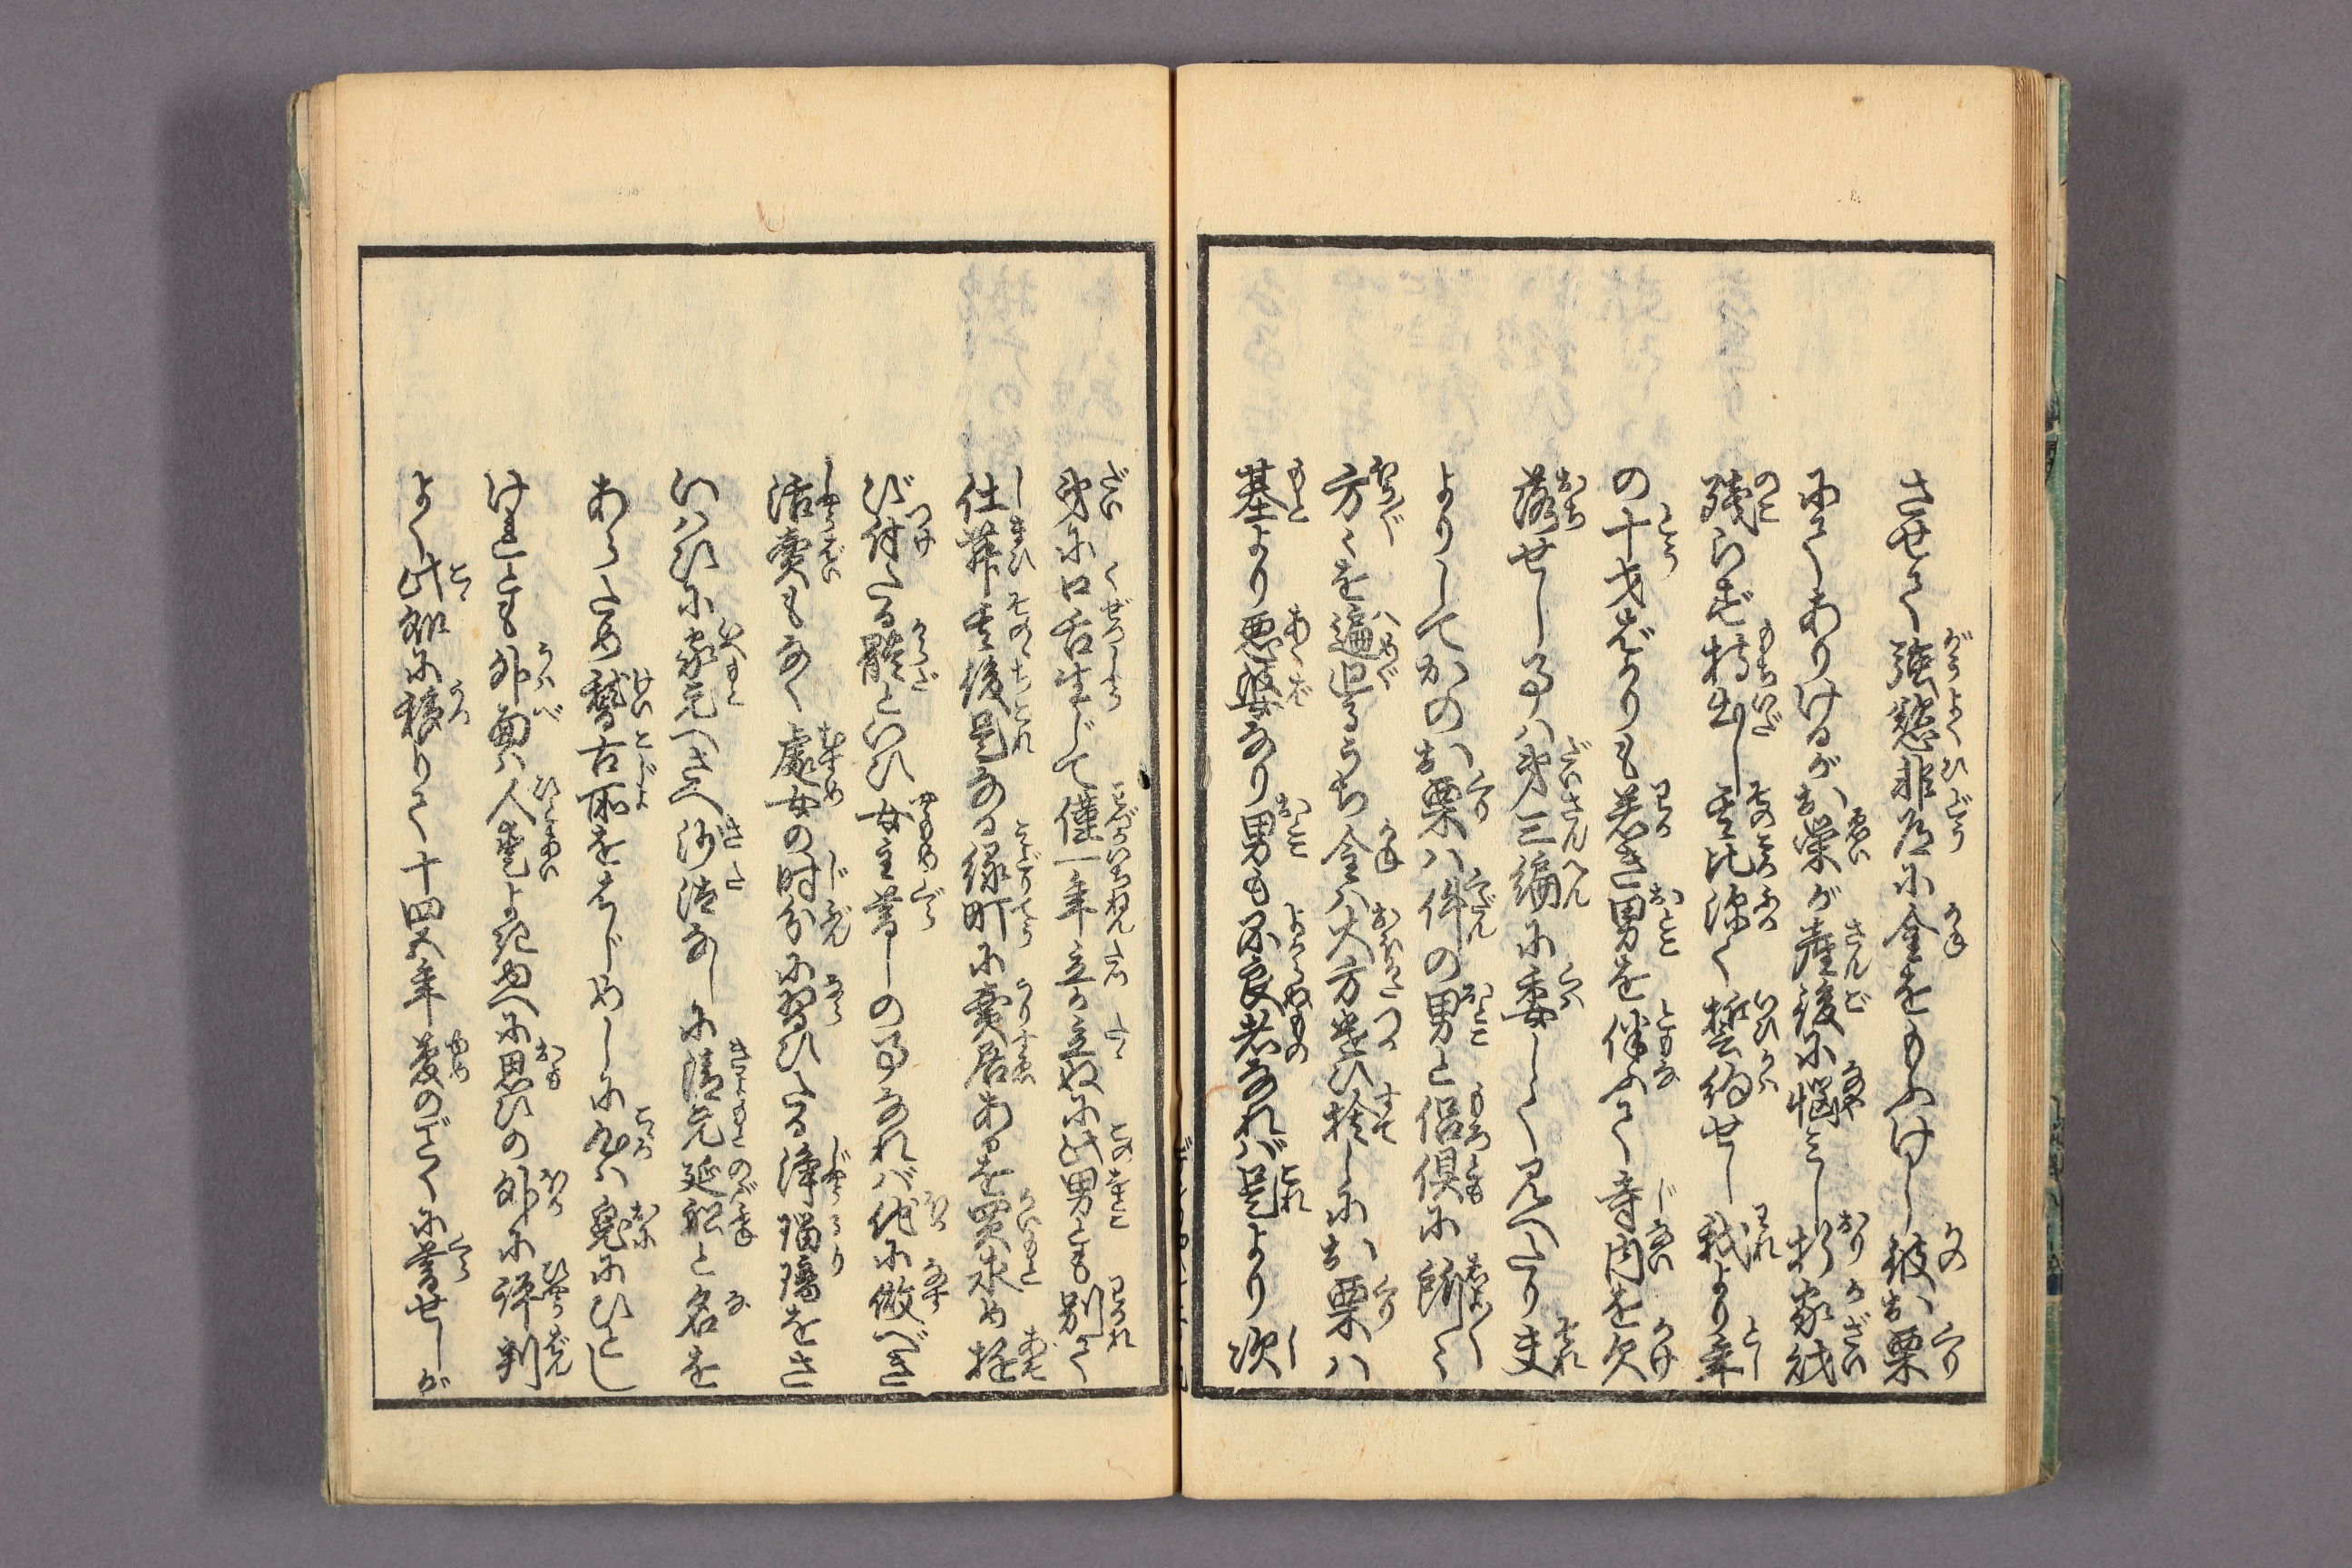 させて強慾非道に金をもふけし彼お栗
にてありけるがお栄が産後に悩みし折家財
残らず持出し其比深く誓約せし我より年
の十才ばかりも若き男を伴ふて寺内を欠
落せし事ハ第三編に委しく見へたり夫
よりしてかのお栗ハ件の男と侶倶に所々
方々を逼迴るうち金ハ大方遣ひ捨しにお栗ハ
基より悪婆なり男も不良者なれバ是より次
第に口舌生じて僅一年立か立ぬに此男とも別て
仕舞其後是なる緑町に売居あるを買求め遊
び付たる骸といひ女主暮しの事なれバ他に做べき
活業もなく處女の時分に習ひたる浄瑠璃をさ
いハひに家元へさへ沙汰なしに清元延船と名を
あらため稽古所をはじめしに心ハ鬼にひとし
けれども外面ハ人愛よきゆへに思ひの外に評判
よく此船に移りて十四五年夢のごとくに暮せしが